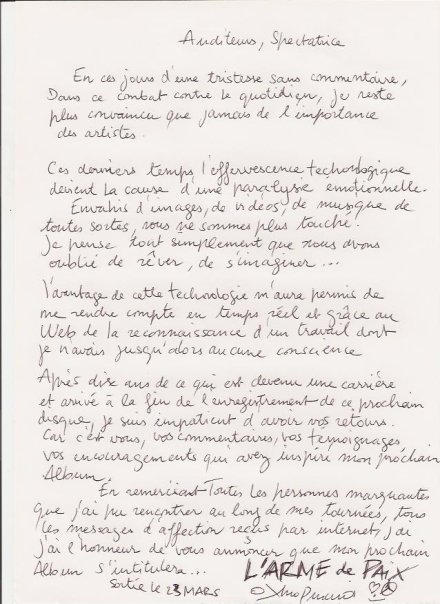 Auditeurs, Spectatrice
En ces jours d'une tristesse sans commentaire,
Dans ce combat contre le quotidien, je reste
plus convaincu que jamais de l'importance
des artistes.
Ces derniers temps l'effervescence technologique
devient la cause d'une paralysie émotionnelle.
Envahis d'images, de vidéos, de musique de
toutes sortes, nous ne sommes plus touché.
Je pense tout simplement que nous avons
oublié de rêver, de s'imaginer...
l'avantage de cette technologie m'aura permis de
me rendre compte en temps réel et grâce au
Web de la reconnaissance d'un travail dont
je n'avais jusqu'alors aucune conscience
Après dix ans de ce qui est devenu une carrière
et arrivé à la fin de l'enregistrement de ce prochain
disque, je suis impatient d'avoir vos retours.
Car c'est vous, vos commentaires, vos témoignages
vos encouragements qui avez inspiré mon prochain
Album.
En remerciant Toutes les personnes marquantes
que j'ai pu rencontrer au long de mes tournées, tous
les messages d'affection reçus par internet, j'ai
j'ai l'honneur de vous annoncer que mon prochain
Album s'intitulera... L'ARME de PAIX
Sortie le 23 MARS